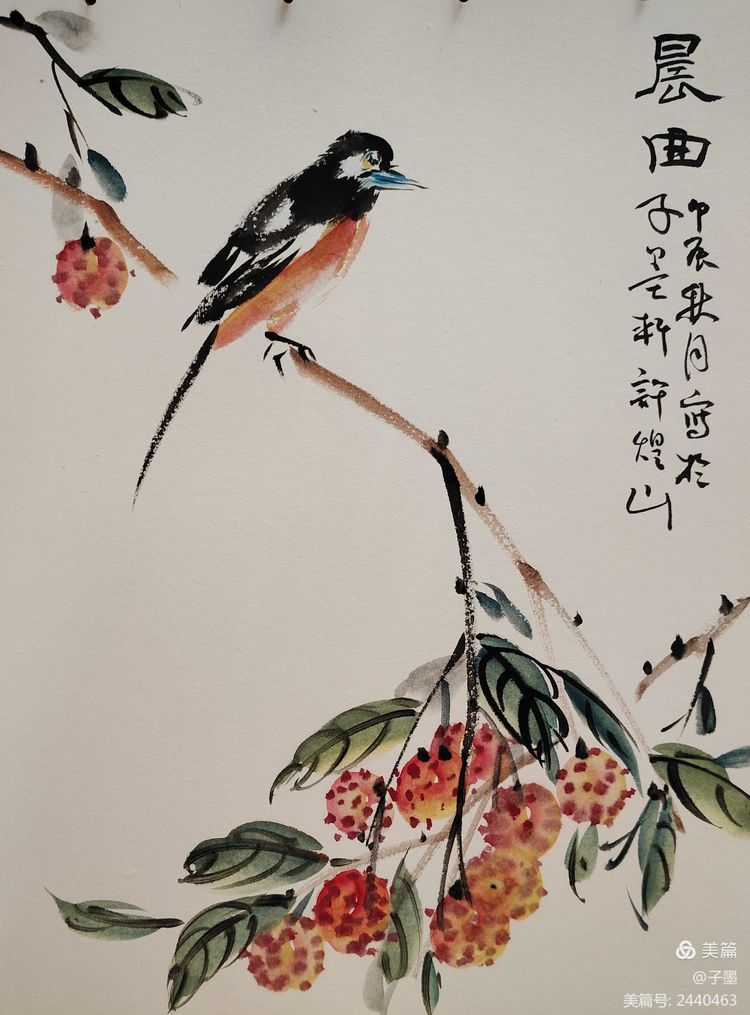 晨曲
甲辰秋月寫於
子墨軒許煌山
美篇
@子墨
美篇号: 2440463